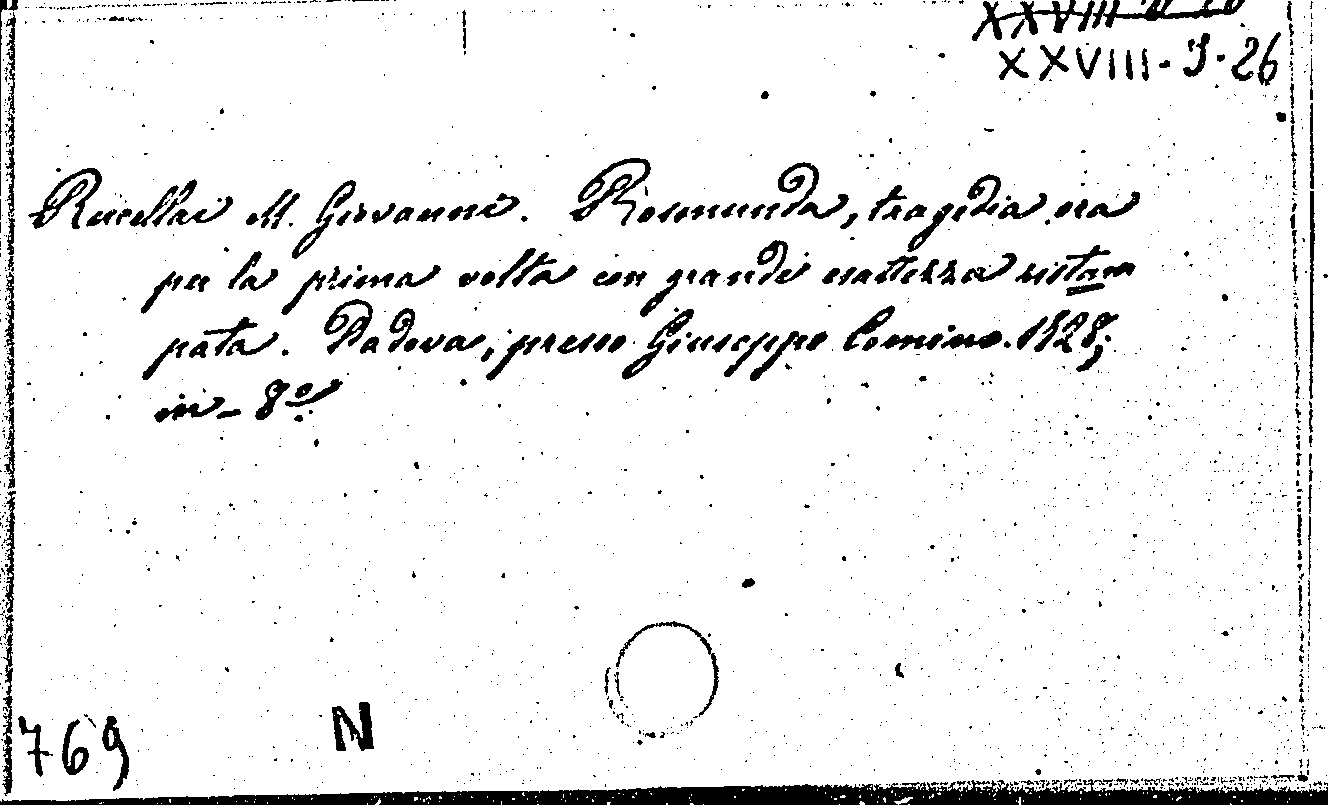 XXVIII
XXVIII-I-26
Rucellai M. Giovanni. Rosmunda, tragedia ora
per la prima volta con grande esattezza ristam
pata. Padova, presso Giuseppe Comino. 1828;
in-8º.
769
N